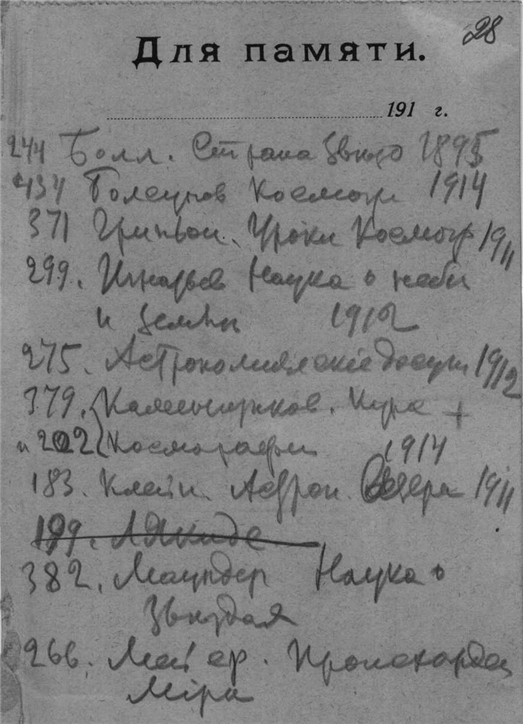 28
Для памяти.
191 г.
244 Болл. Страна Звѣзд 1895
434 Космогр 1914
371 Гриньон. Уроки Космогр 1911
299. Игнатьев Наука о небѣ
и землѣ 1912
275. Астрономическіе досуги 1912
379. Каменьщиков. Курс +
и 202 Космографіи 1914
183. Клейн Астрон. Вечера 1911
199.
382. Маундер Наука о
Звѣздах
266. Мейер. Происхожден
Міра